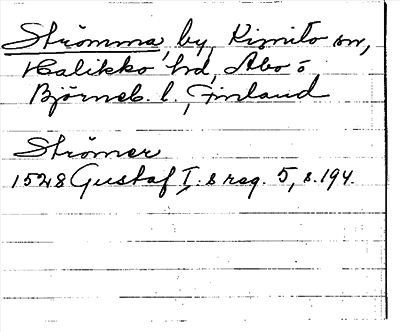 Strömma, by, Kimito sn,
Halikko hd, Åbo ö
Björneb. l., Finland
Strömer
1528 Gustaf I.s reg. 5, s. 194.